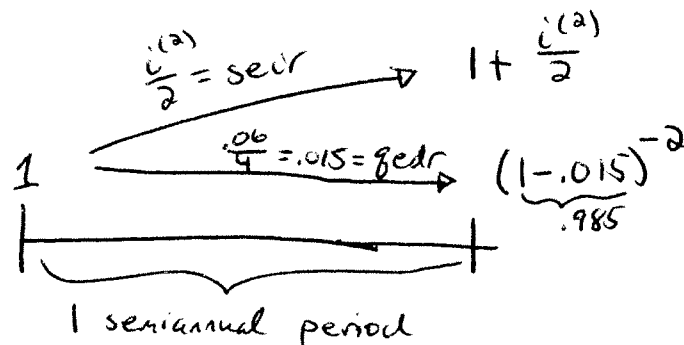 i^(2)/2 = seir
1 + i^(2)/2
1
.06/4 = .015 = qedr
(1-.015)^-2
.985
1 semiannual period